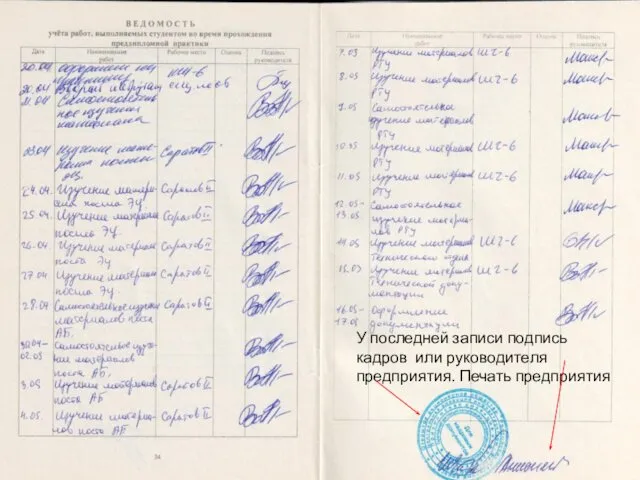 ВЕДОМОСТЬ
учёта работ, выполняемых студентом во время прохождения
преддипломной практики
Дата Наименование работ Рабочее место Оценка Подпись руководителя
20.04 ШЧ-6
21.04 Самостоятель
ное изучение
материала
23.04 Изучение мате-
риала Саратов II
24.04. Изучение матери-
ала поста Эц. Саратов II
25.04. Изучение материала
поста Эц. Саратов II
26.04 Изучение материала
поста Эц Саратов II
27.04 Изучение материала
поста Эц. Саратов II
28.04 Самостоятельное изучение
материалов поста
АБ. Саратов II
30.04-
02.05 Самостоятельное изуче-
ние материалов
поста АБ.
3.05 Изучение материалов
поста АБ Саратов II
4.05. Изучение материа-
лов поста АБ Саратов II
34
Дата Наименование работ Рабочее место Оценка Подпись руководителя
7.05 Изучение материалов
РТУ ШЧ-6
8.05 Изучение материалов
РТУ ШЧ-6
9.05 Самостоятельное
изучение материалов
РТУ
10.05 Изучение материалов
РТУ ШЧ-6
11.05 Изучение материалов
РТУ ШЧ-6
12.05-
13.05 Самостоятельное
изучение материа-
лов РТУ
14.05 Изучение материалов
Технического отдела ШЧ-6
15.05 Изучение материалов
Технической доку-
ментации ШЧ-6
16.05-
17.05 Оформление
документации
У последней записи подпись
кадров или руководителя
предприятия. Печать предприятия